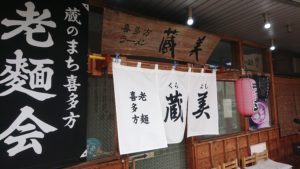 蔵のまち喜多方
老麺会
喜多方
ラーメン
蔵美
くら
蔵
よし
美
老麺
喜多方